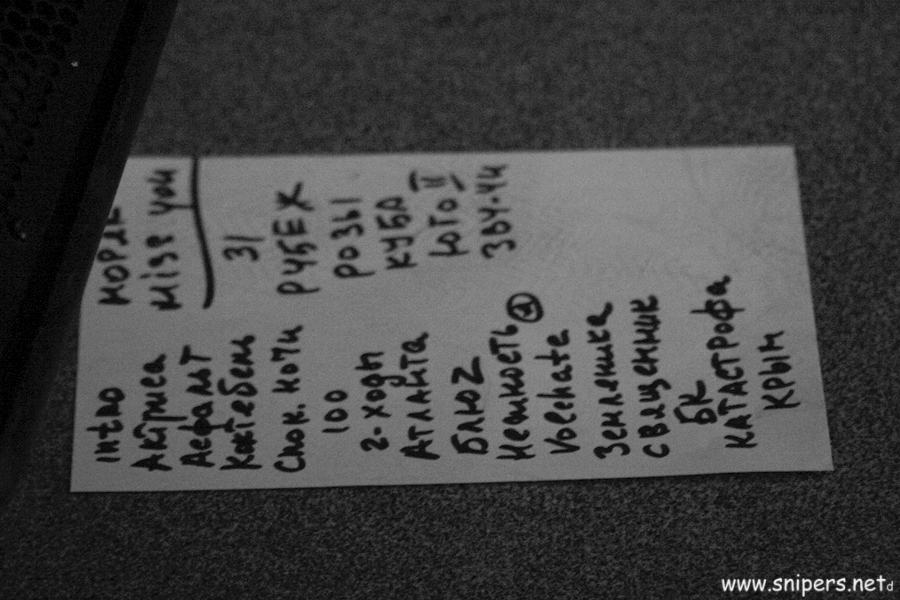 Intro
Актриса
Дефолт
Коктебель
Спок. ночи
100
2-ходы
Атланта
БЛЮZ
Нежность
Voiehate
Земляника
священник
БК
КАТАСТРОФА
КРЫМ
МОРЕ
Miss you
31
РУБЕЖ
РОЗЫ
КУБА
ЮГО II
ЗВУ-ЧИ
www.snipers.net